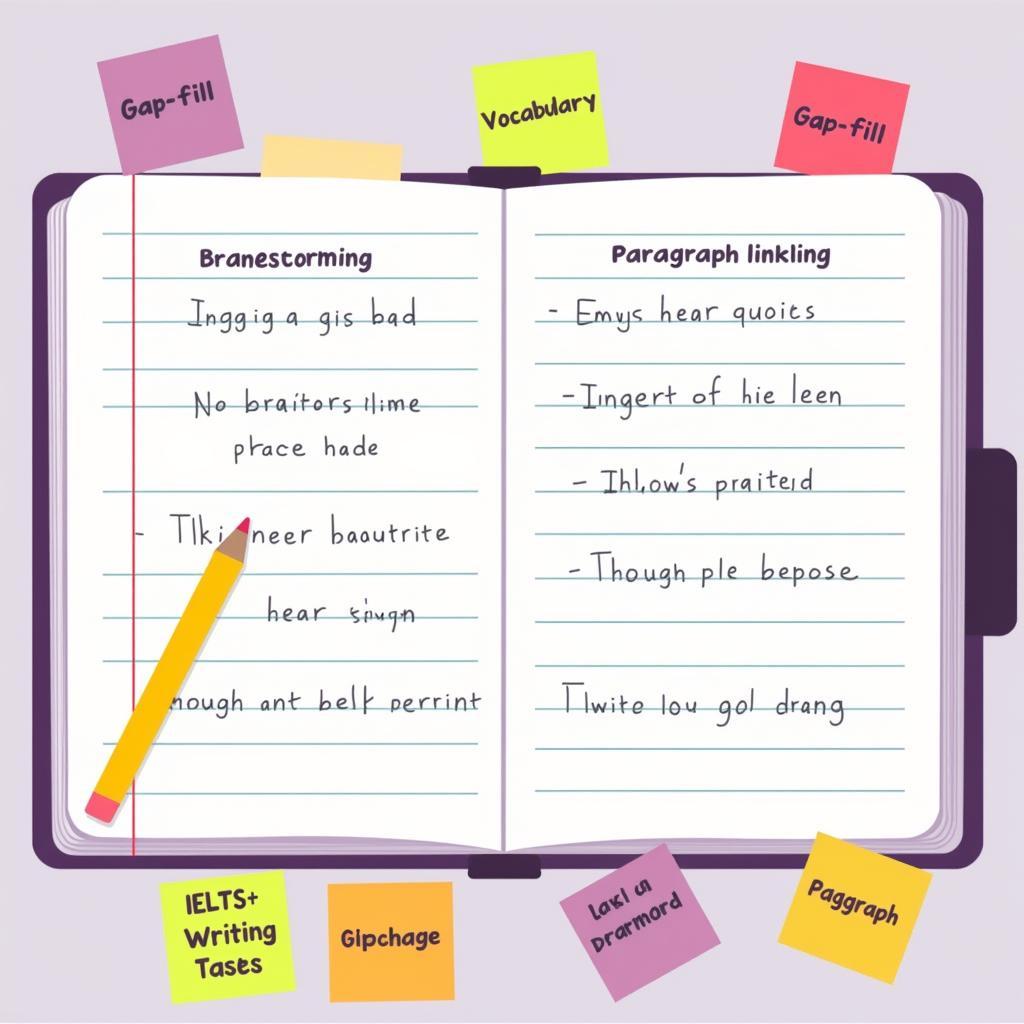 Gap-fill
Vocabulary
Gap-fill
Branestorming
Inggig a gis bad
No braitors
phace hade
neer baautrite
hear
ant belk perrint
Paragraph linkling
- Emys hear quoits
- Iingert of hie leen
- praiteid
- Though ple bepose
Tlwite lou gol drang
IELTS+
Writing
Tases
Gipchage
Paggraph